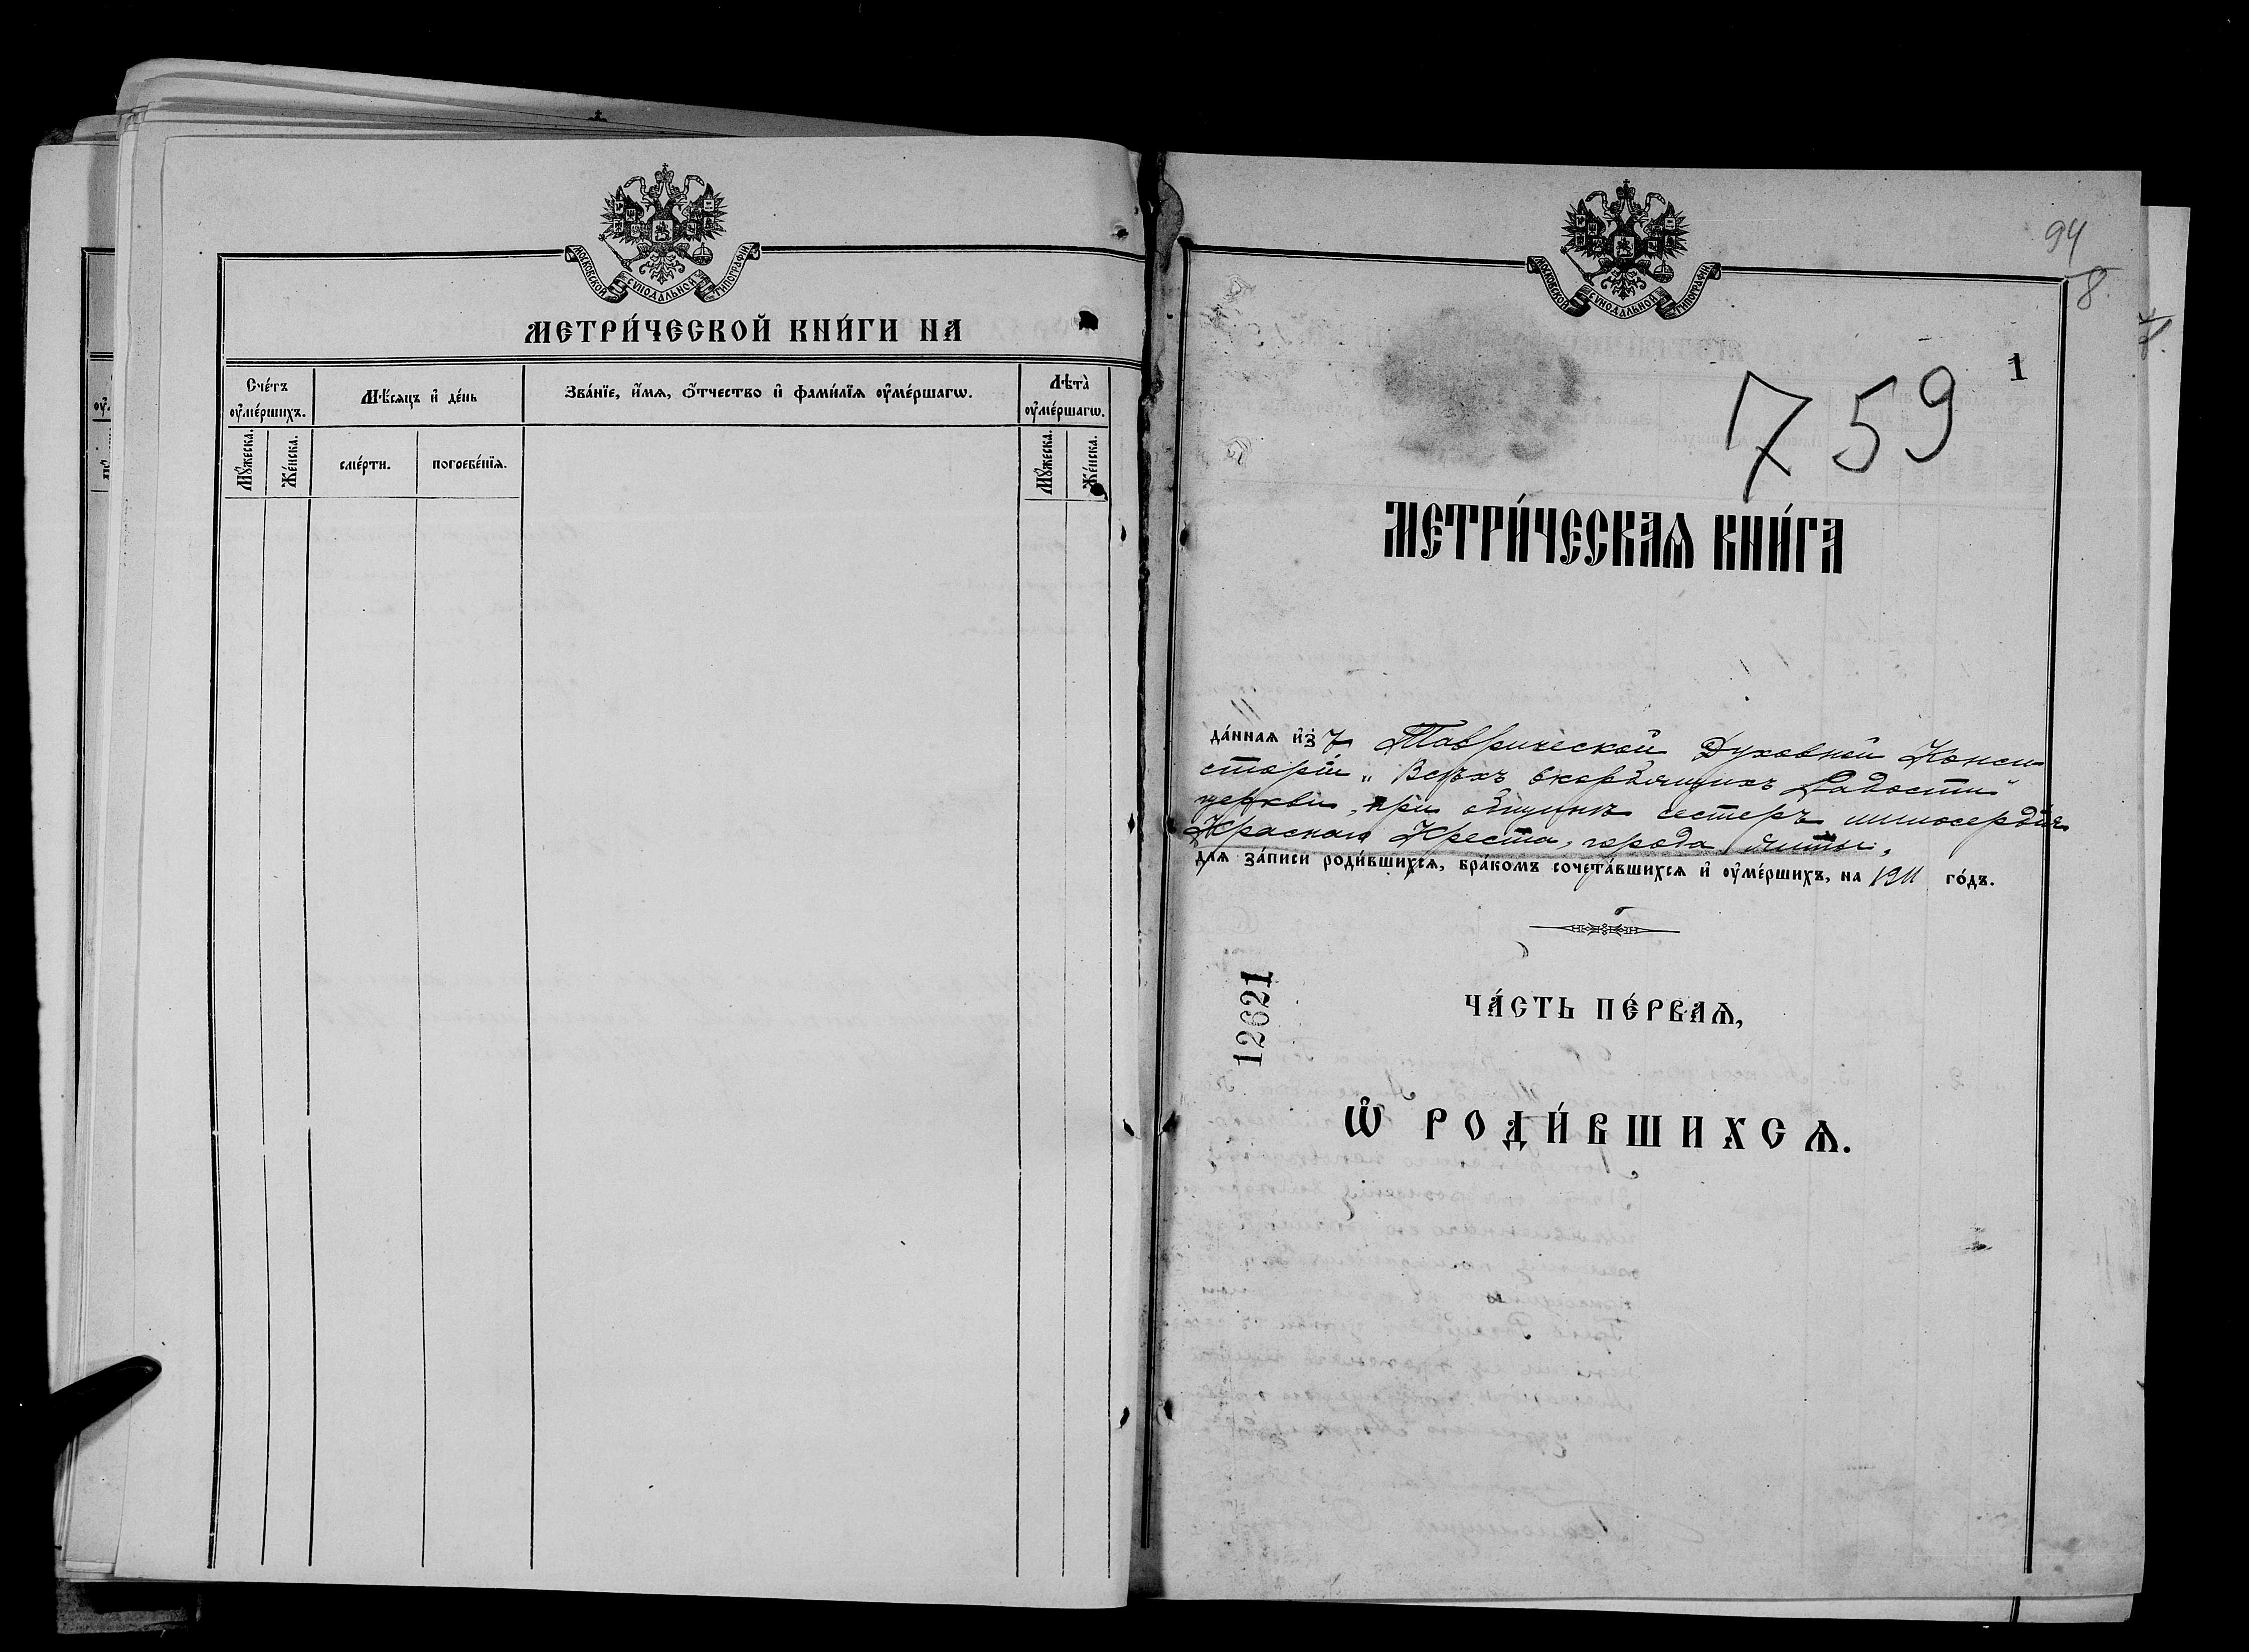 МОСКОВСКОЙ СѴНОДАЛЬНОЙ ТИПОГРАФІИ
МЕТРИ́ЧЕСКОЙ КНИ́ГИ НА
Сче́тъ ᲂу҆ме́ршихъ.
Мѣ́сяцъ и҆ де́нь
Зва́нїе, и҆́мѧ, ѻ҆́тчество и҆ фами́лїѧ ᲂу҆ме́ршагѡ.
Лѣта̀ ᲂу҆ме́ршагѡ.
Мꙋ́жеска.
Же́нска.
сме́рти.
погребе́нїѧ.
Мꙋ́жеска.
Же́нска.
МОСКОВСКОЙ СѴНОДАЛЬНОЙ ТИПОГРАФІИ
94
8
1
759
МЕТРИ́ЧЕСКАѦ КНИ́ГА
да́ннаѧ и҆зъ Таврической Духовной Конси-
сторіи „Всѣхъ скорбящихъ Радости"
церкви, при общинѣ сестеръ милосердія
Краснаго Креста, города Ялты,
длѧ за́писи роди́вшихсѧ, бра́комъ сочета́вшихсѧ и҆ ᲂу҆ме́ршихъ, на 1911 го́дъ.
ЧА́СТЬ ПЕ́РВАѦ,
Ѡ҆ РОДИ́ВШИХСѦ.
12621